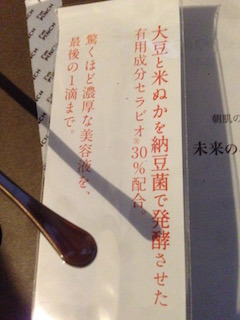 大豆と米ぬかを納豆菌で発酵させた
有用成分セラビオ®30%配合。
驚くほど濃厚な美容液を、
最後の1滴まで。
朝肌の
未来の